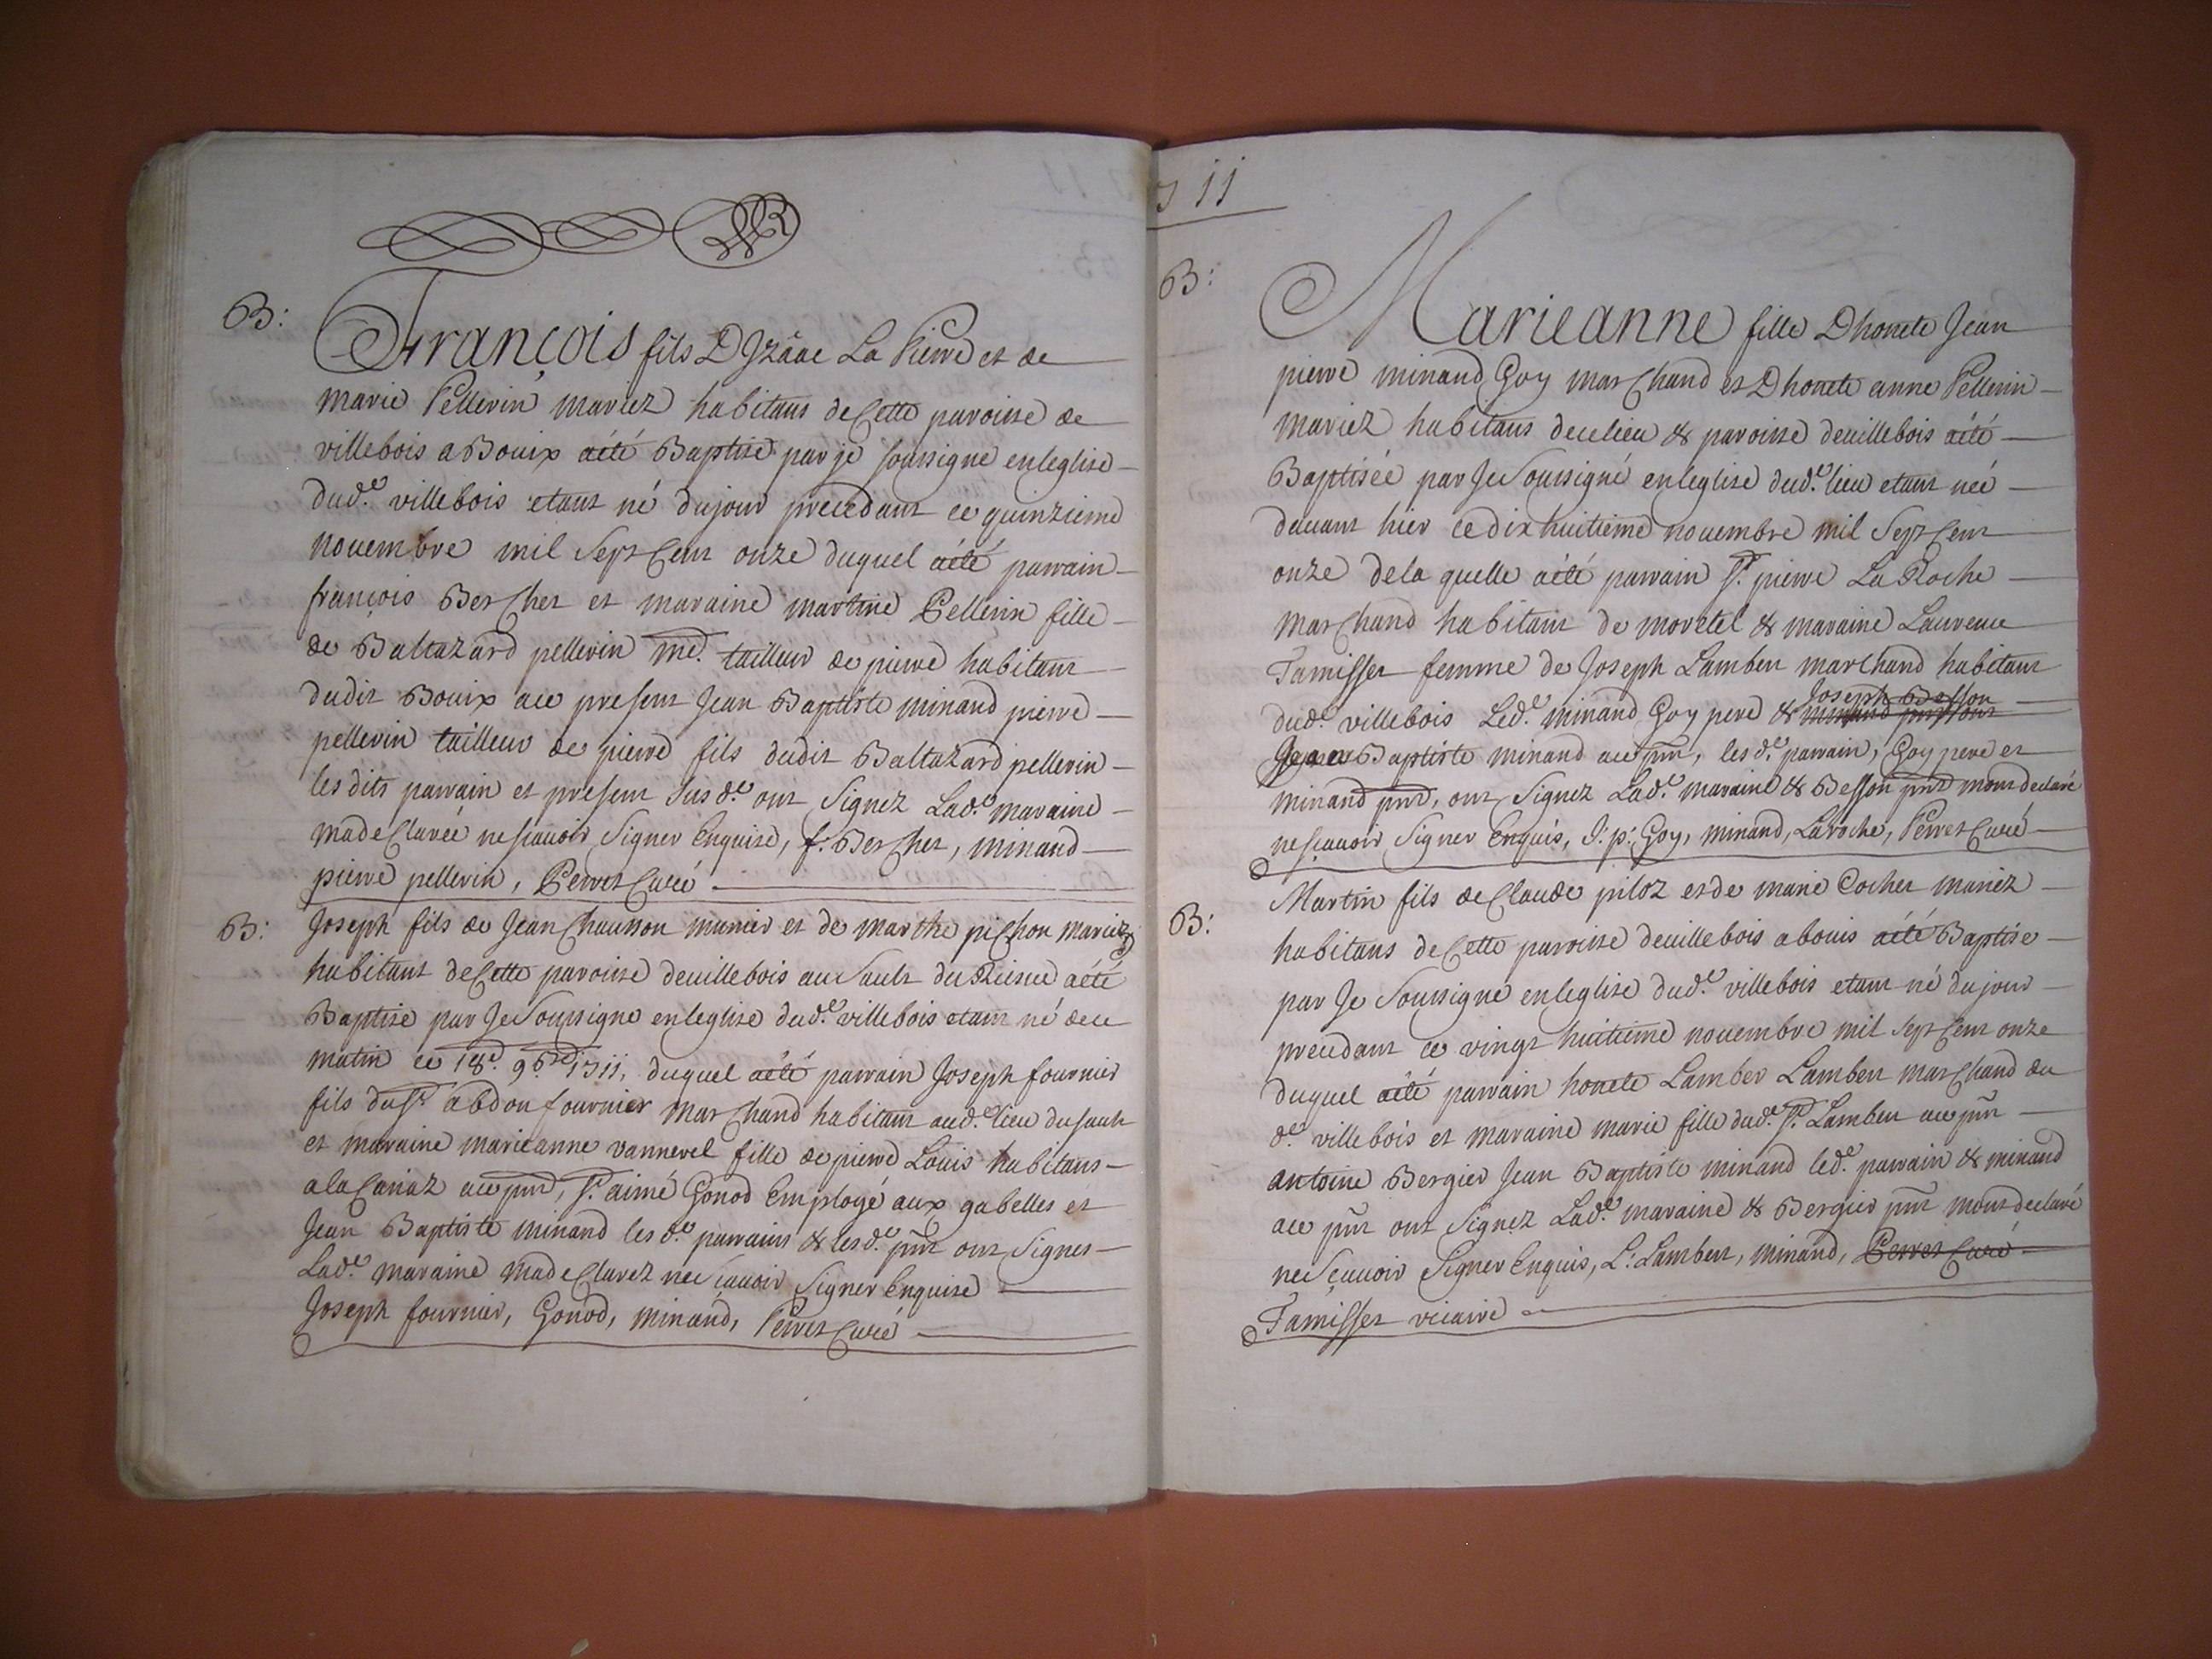 B:
François fils D Jzâac La Pierre et de
marie Pellerin mariez habitans de Cette paroisse de
villebois a Bouix aété Baptisé par je soussigne en leglise
dud.e villebois etant né dujour precedant ce quinzieme
nouembre mil Sept Cent onze duquel aété parrain
françois BerChet et maraine martine Pellerin fille
de Baltazard pellerin me. tailleur de pierre habitant
dudit Bouix aue present Jean Baptiste minand pierre
pellerin tailleur de pierre fils dudit Baltazard pellerin
les dits parrain et present sus d.e ont Signez Lad.e maraine
ma deClarée ne scauoir Signer Enquise, f. BerChet, minand
pierre pellerin, Perret Curé
B:
Joseph fils de Jean Chausson munier et de marthe piChon mariez
habitant de Cette paroisse deuillebois au Sault du Rosne aété
Baptisé par Je Soussigne en leglise dud.e villebois etant né de ce
matin ce 18e. 9bre 1711, duquel aété parrain Joseph fournier
fils du Sr abdon fournier marChand habitant aud.e lieu du sault
et maraine marieanne vannerel fille de pierre Louis habitans
a la Cariaz aue pnt, Sr. aimé Gonod Employé aux gabelles et
Jean Baptiste minand les d.e parrains & les d.e pnt ont Signes
Lad.e maraine ma deClarez ne Scauoir Signer Enquise
Joseph fournier, Gonod, minand, Perret Curé
711
B:
Marieanne fille Dhonete Jean
pierre minand Goy marChand et Dhonete anne Pellerin
mariez habitans decelieu & paroisse deuillebois aété
Baptisée par Je Soussigné en leglise dud.e lieu etant née
dauant hier ce dix huitieme nouembre mil Sept Cent
onze dela quelle aété parrain Sr. pierre La Roche
marChand habitant de moretel & maraine Laurence
Tamisset femme de Joseph Lambert marChand habitant
dud.e villebois Led.e minand Goy pere & Joseph Besson
Jean Baptiste minand aue pnt, les d.e parrain, Goy pere et
minand pnt, ont Signez Lad.e maraine & Besson pnt mont declaré
ne scauoir Signer Enquis, J: p: Goy, minand, Laroche, Perret Curé
B:
Martin fils de Claude piloz et de marie Cocher mariez
habitans de Cette paroisse deuillebois a bouis aété Baptise
par Je Soussigne en leglise dud.e villebois etant né du jour
precedant ce vingt huitieme nouembre mil sept Cent onze
duquel aété parrain honete Lamber Lambert marChand du
d.e villebois et maraine marie fille dud.e Sr. Lambert aue pnt
antoine Bergier Jean Baptiste minand led.e parrain & minand
aue pnt ont Signez Lad.e maraine & Bergier pnt mont declaré
ne Scauoir Signer Enquis, L: Lambert, minand, Perret Curé
Tamisset vicaire